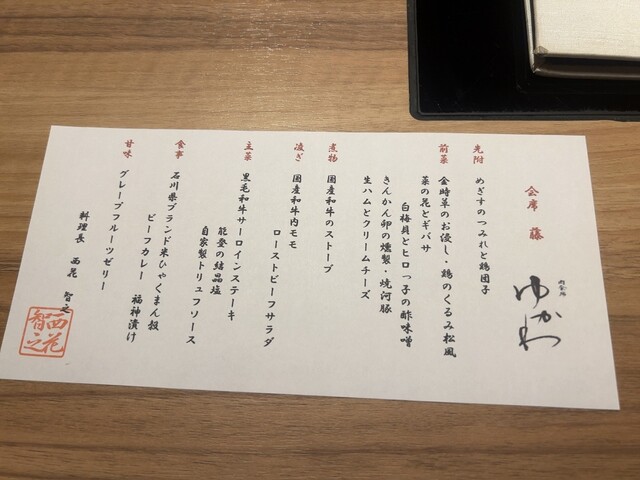 会席 藤
肉会席
ゆかわ
先附 めぎすのつみれと鶏団子
前菜 金時草のお浸し・鶏のくるみ松風
菜の花とギバサ
白梅貝とヒロっ子の酢味噌
きんかん卵の燻製・焼河豚
生ハムとクリームチーズ
煮物 国産和牛のストーブ
凌ぎ 国産和牛内モモ
ローストビーフサラダ
主菜 黒毛和牛サーロインステーキ
能登の結晶塩
自家製トリュフソース
食事 石川県ブランド米ひゃくまん穀
ビーフカレー 福神漬け
甘味 グレープフルーツゼリー
料理長 西花 智之
西花
智之